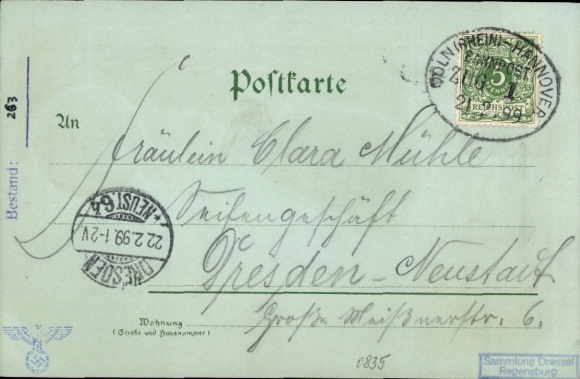 Postkarte
CÖLN (RHEIN)-HANNOVER
BAHNPOST
ZUG 1
21 2 99
5
REICHSPOST
An
Fräulein Clara Mühle
Seifengeschäft
Dresden-Neustadt
Große Meißnerstr. 6.
Wohnung
(Straße und Hausnummer)
DRESDEN
22.2.99.1-2V
NEUST.6
Bestand: 263
0835
Sammlung Dressel
Regensburg